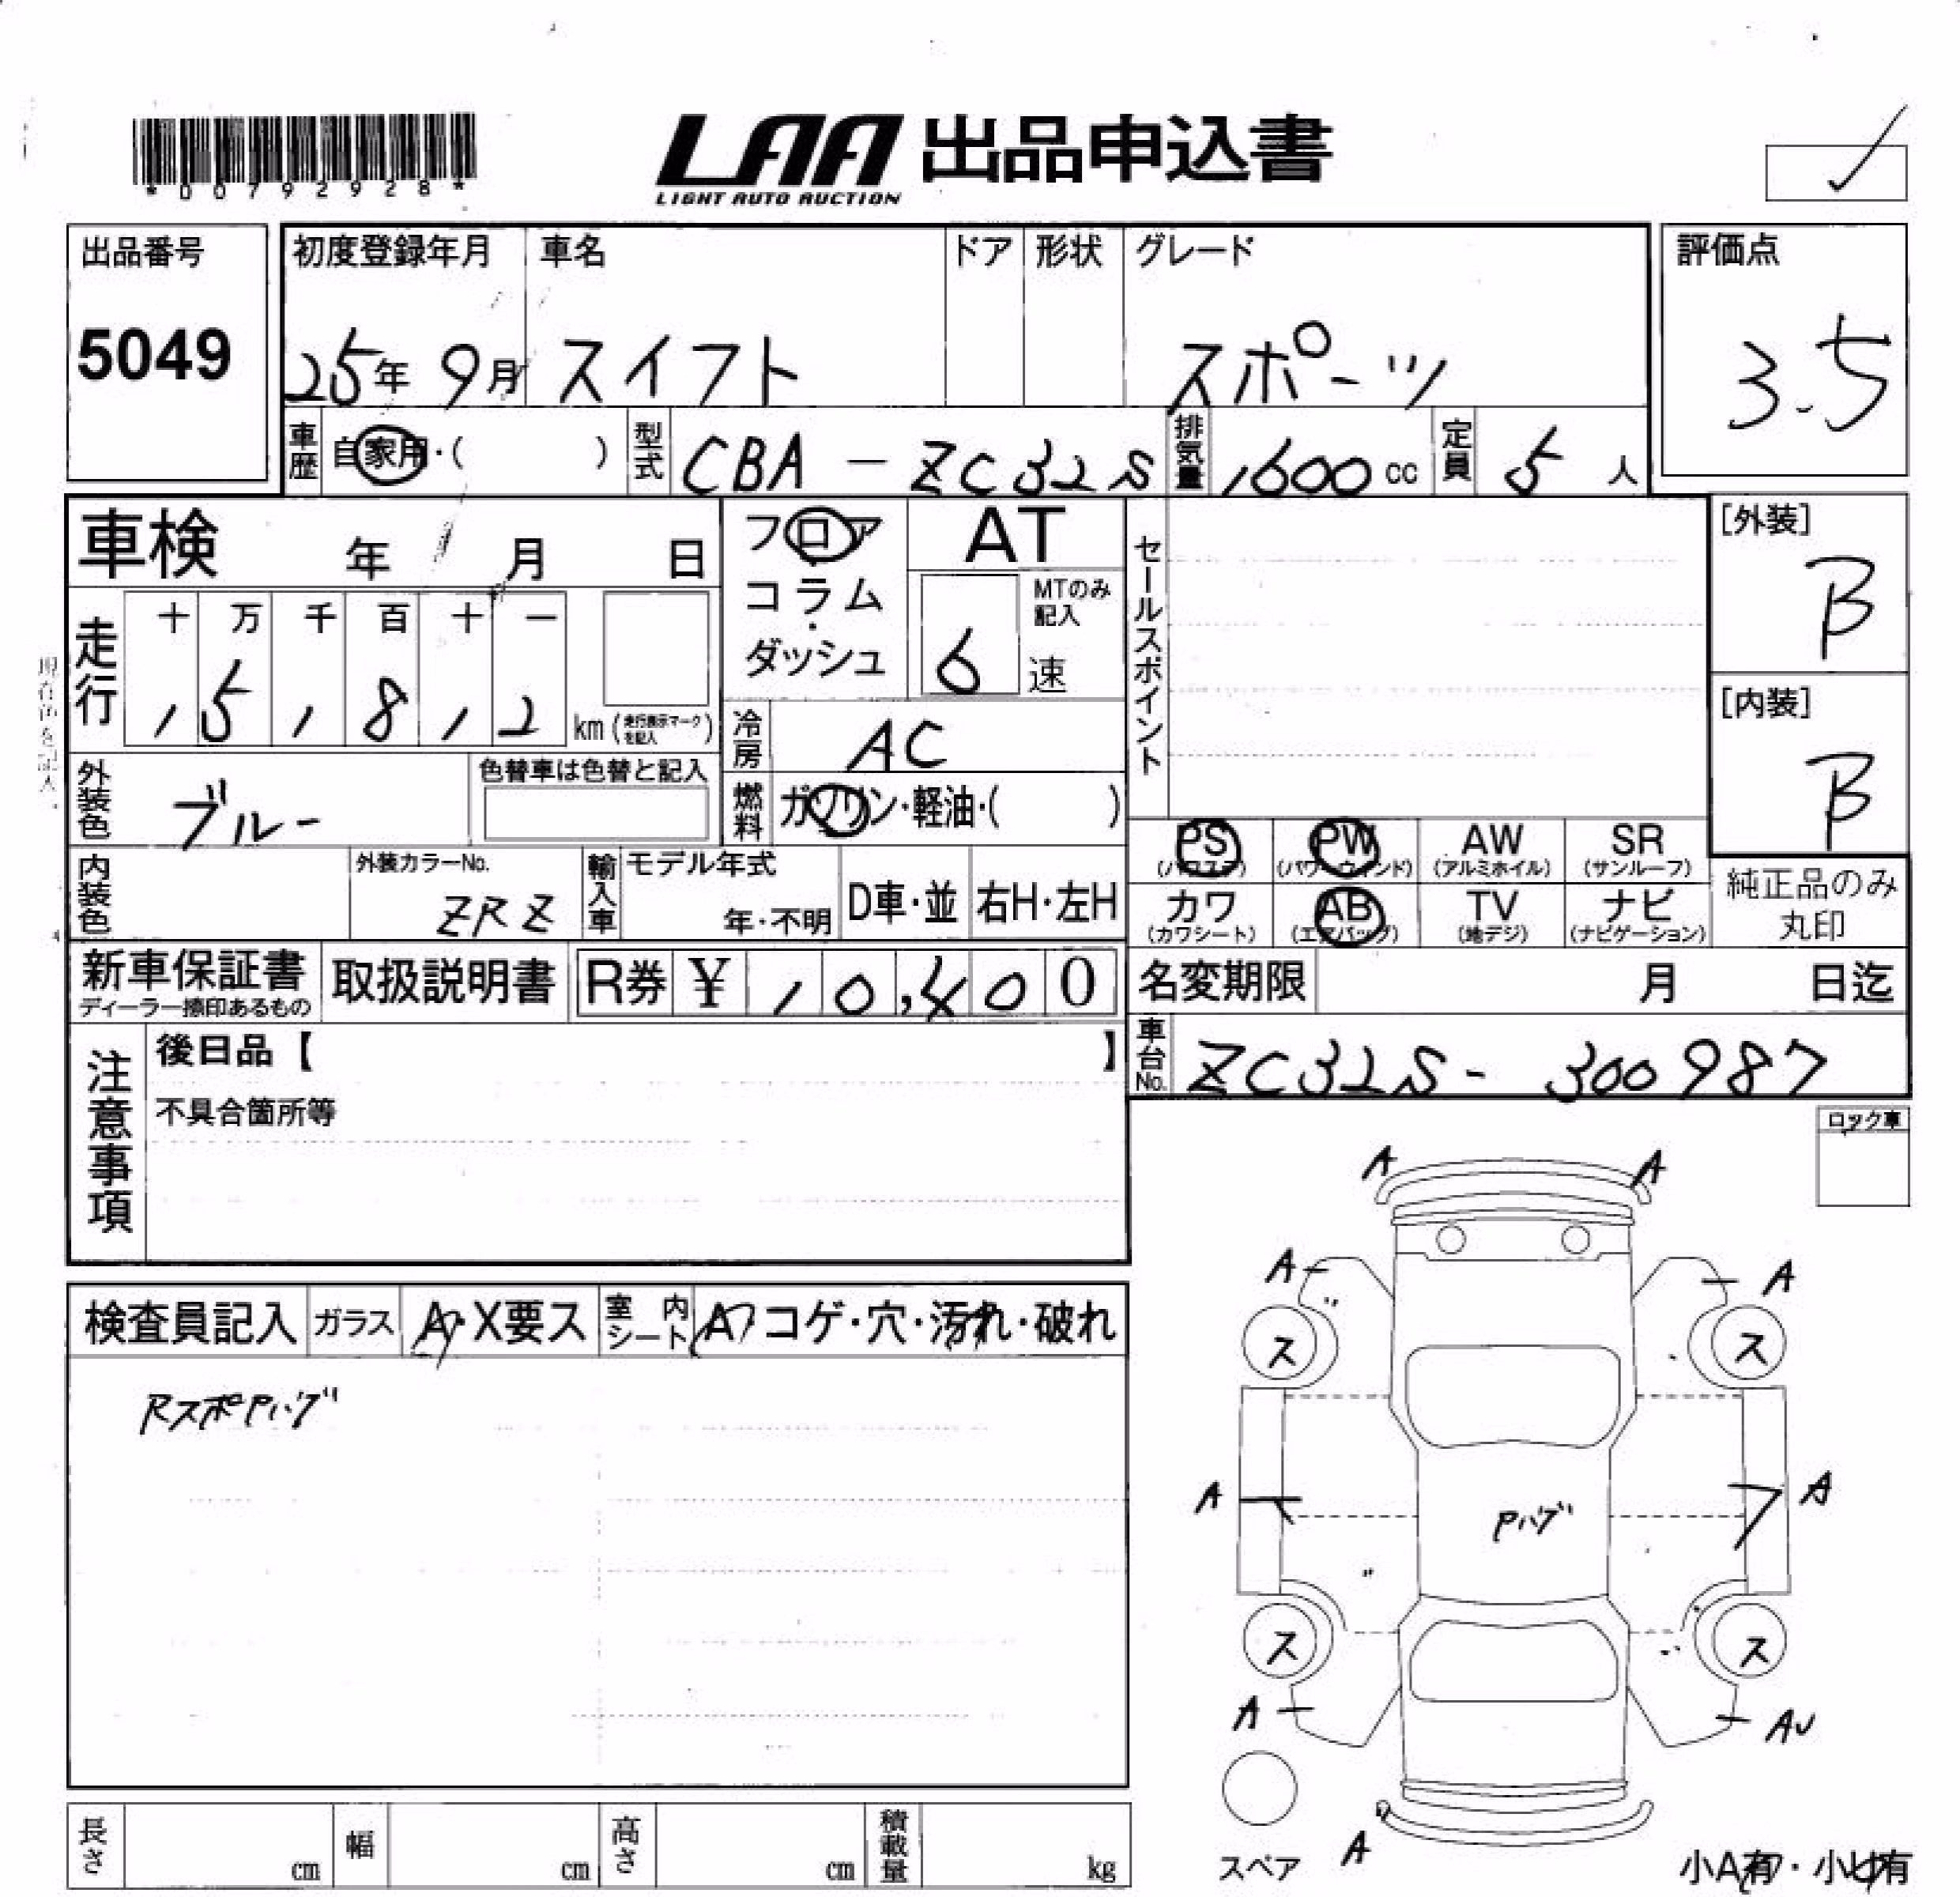 *00792928*
LAA 出品申込書
LIGHT AUTO AUCTION
出品番号 初度登録年月 車名 ドア 形状 グレード 評価点
5049 25年 9月 スイフト スポーツ 3.5
車歴 自家用・( ) 型式 CBA-ZC32S 排気量 1600cc 定員 5人
車検 年 月 日 フロア AT セールスポイント [外装]
コラム・ MTのみ記入 B
走行 十 万 千 百 十 一 ダッシュ 6速
1 5 1 8 1 2 km (走行表示マークを記入) [内装]
現在色を記入
冷房 AC B
外装色 ブルー 色替車は色替と記入 燃料 ガソリン・軽油・( )
PS (パワステ) PW (パワーウインド) AW (アルミホイル) SR (サンルーフ)
内装色 外装カラーNo. ZRZ 輸入車 モデル年式 年・不明 D車・並 右H・左H
カワ (カワシート) AB (エアバッグ) TV (地デジ) ナビ (ナビゲーション) 純正品のみ丸印
新車保証書 取扱説明書 R券 ¥ 10,400 名変期限 月 日迄
ディーラー捺印あるもの
注意事項 後日品【 】 車台No. ZC32S-300987
不具合箇所等
ロック車
A A
A A
検査員記入 ガラス A・X要ス 室内シート A コゲ・穴・汚れ・破れ
ス ス
RスポPハゲ
A A
Pハゲ
ス ス
A AU
スペア A
小A有・小U有
長さ cm 幅 cm 高さ cm 積載量 kg